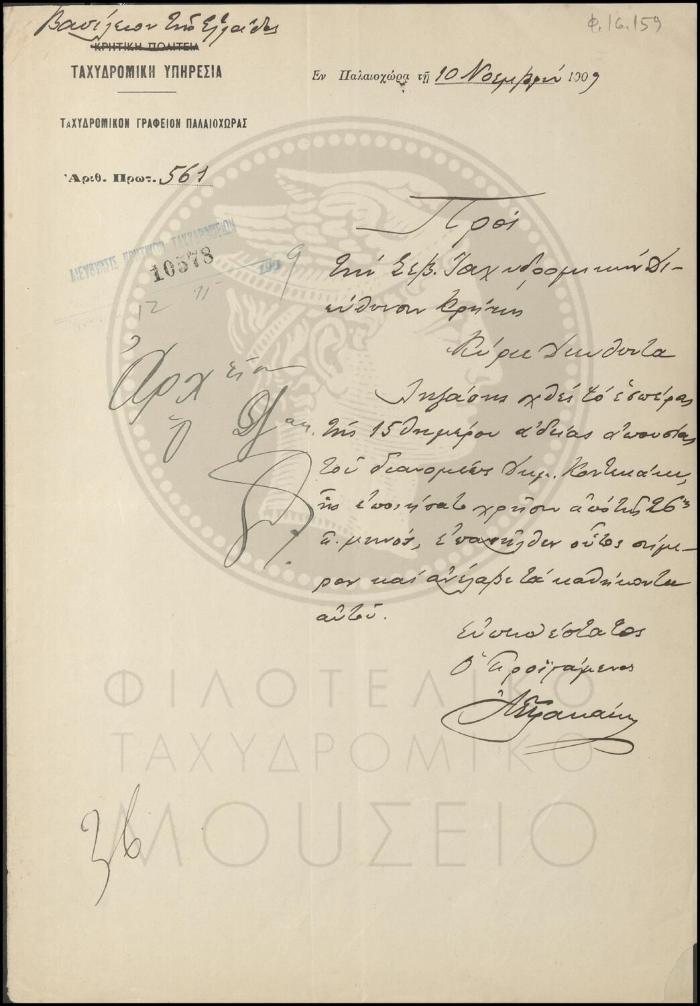 Βασίλειον της Ελλάδος
Φ.16.159
ΚΡΗΤΙΚΗ ΠΟΛΙΤΕΙΑ
ΤΑΧΥΔΡΟΜΙΚΗ ΥΠΗΡΕΣΙΑ
Εν Παλαιοχώρα τῇ 10 Νοεμβρίου 1909
ΤΑΧΥΔΡΟΜΙΚΟΝ ΓΡΑΦΕΙΟΝ ΠΑΛΑΙΟΧΩΡΑΣ
Ἀριθ. Πρωτ. 561
Πρὸς
ΔΙΕΥΘΥΝΣΙΣ ΚΡΗΤΙΚΩΝ ΤΑΧΥΔΡΟΜΕΙΩΝ
10578 1909
12 11
τὴν Σεβ. Ταχυδρομικὴν Δι-
εύθυνσιν Κρήτης
Κύριε Διευθυντά
Ἀρχεῖον
Ληξάσης χθὲς τὸ ἑσπέρας
τῆς 15θημέρου ἀδείας ἀπουσίας
τοῦ διανομέως Δημ.
ἧς ἐποιήσατο χρῆσιν ἀπὸ τῆς 26ης
π. μηνός, ἐπανῆλθεν οὗτος σήμε-
ρον καὶ ἀνέλαβε τὰ καθήκοντα
αὐτοῦ.
Εὐπειθέστατος
Ὁ Προϊστάμενος
36
ΦΙΛΟΤΕΛΙΚΟ
ΤΑΧΥΔΡΟΜΙΚΟ
ΜΟΥΣΕΙΟ